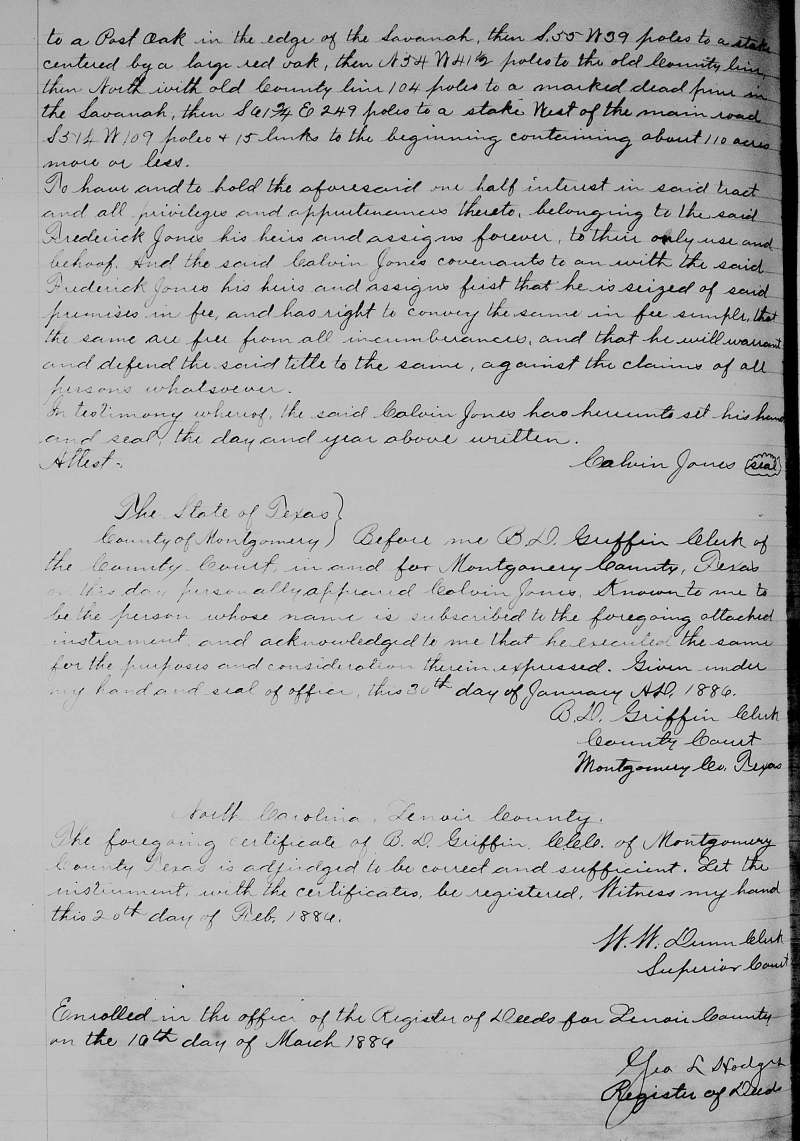 to a Post Oak in the edge of the Savanah, then S.55 W 39 poles to a stake
centered by a large red oak, then N 34 W 41½ poles to the old County line,
then North with old County line 104 poles to a marked dead pine in
the Savanah, then S 61¾ E 249 poles to a stake West of the main road
S 51½ W 109 poles + 15 links to the beginning containing about 110 acres
more or less.
To have and to hold the aforesaid one half interest in said tract
and all privileges and appurtenances thereto, belonging to the said
Frederick Jones his heirs and assigns forever, to their only use and
behoof. And the said Calvin Jones covenants to an with the said
Frederick Jones his heirs and assigns first that he is seized of said
premises in fee, and has right to convey the same in fee simple, that
the same are free from all incumberances, and that he will warrant
and defend the said title to the same, against the claims of all
persons whatsoever.
In testimony whereof, the said Calvin Jones has hereunto set his hand
and seal, the day and year above written.
Attest. Calvin Jones (seal)
The State of Texas }
County of Montgomery ) Before me B. D. Griffin Clerk of
the County Court, in and for Montgomery County, Texas
on this day personally appeared Calvin Jones, Known to me to
be the person whose name is subscribed to the foregoing attached
instrument, and acknowledged to me that he executed the same
for the purposes and consideration therein expressed. Given under
my hand and seal of office, this 30th day of January A.D. 1886.
B. D. Griffin Clerk
County Court
Montgomery Co. Texas
North Carolina, Lenoir County.
The foregoing certificate of B. D. Griffin, C.C.C. of Montgomery
County Texas is adjudged to be correct and sufficient. Let the
instrument, with the certificates, be registered. Witness my hand
this 20th day of Feb. 1886.
W. W. Dunn Clerk
Superior Court
Enrolled in the office of the Register of Deeds for Lenoir County
on the 10th day of March 1886
Geo L Hodges
Register of Deeds